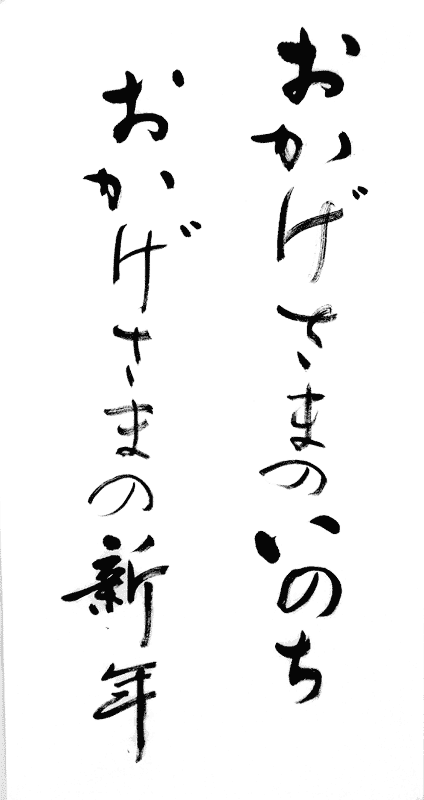 おかげさまのいのち
おかげさまの新年